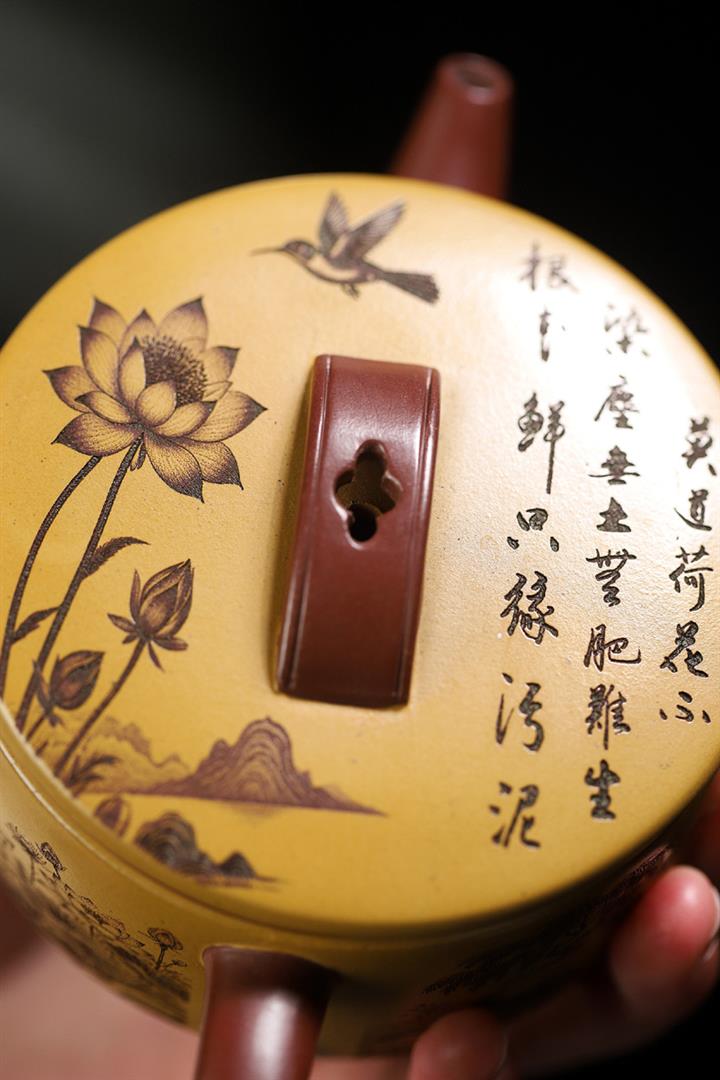 莫道荷花不
染塵無土無肥難生
根鮮只緣污泥